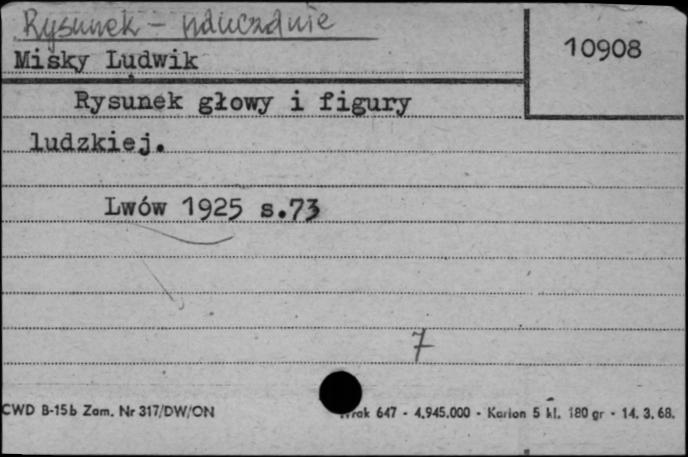 Rysunek - nauczanie
Misky Ludwik
10908
Rysunek głowy i figury
ludzkiej.
Lwów 1925 s.73
7
CWD B-15b Zam. Nr 317/DW/ON
647 - 4.945.000 - Karton 5 kl. 180 gr - 14. 3. 68.